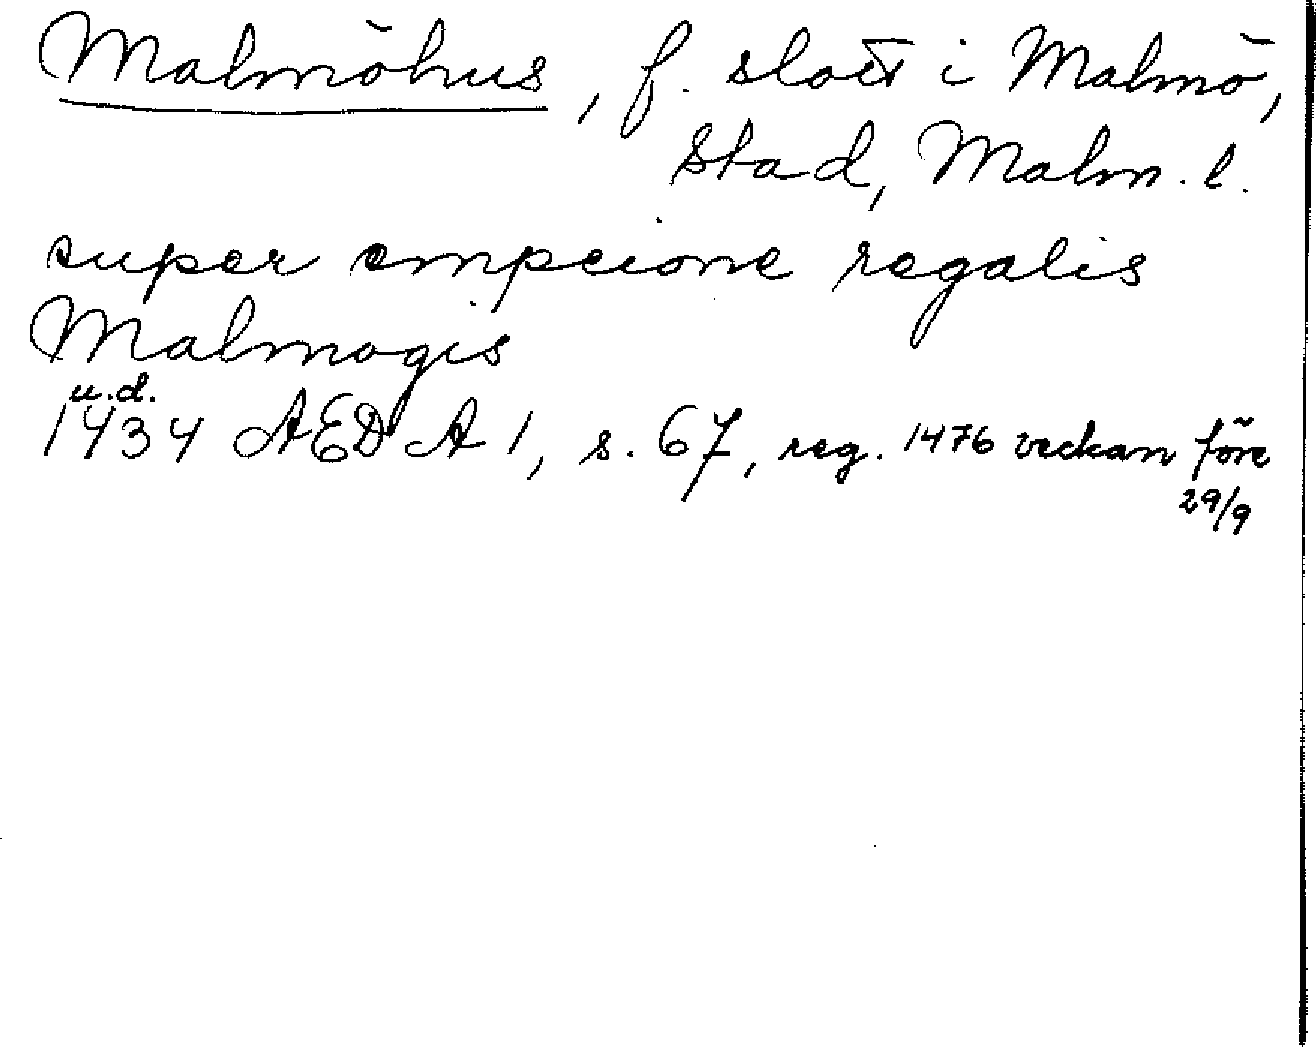 Malmöhus, f. slott i Malmö,
stad, Malm. l.
super empcione regalis
Malmogis
u.d.
1434 AEDA 1, s. 67, reg. 1476 veckan före
29/9